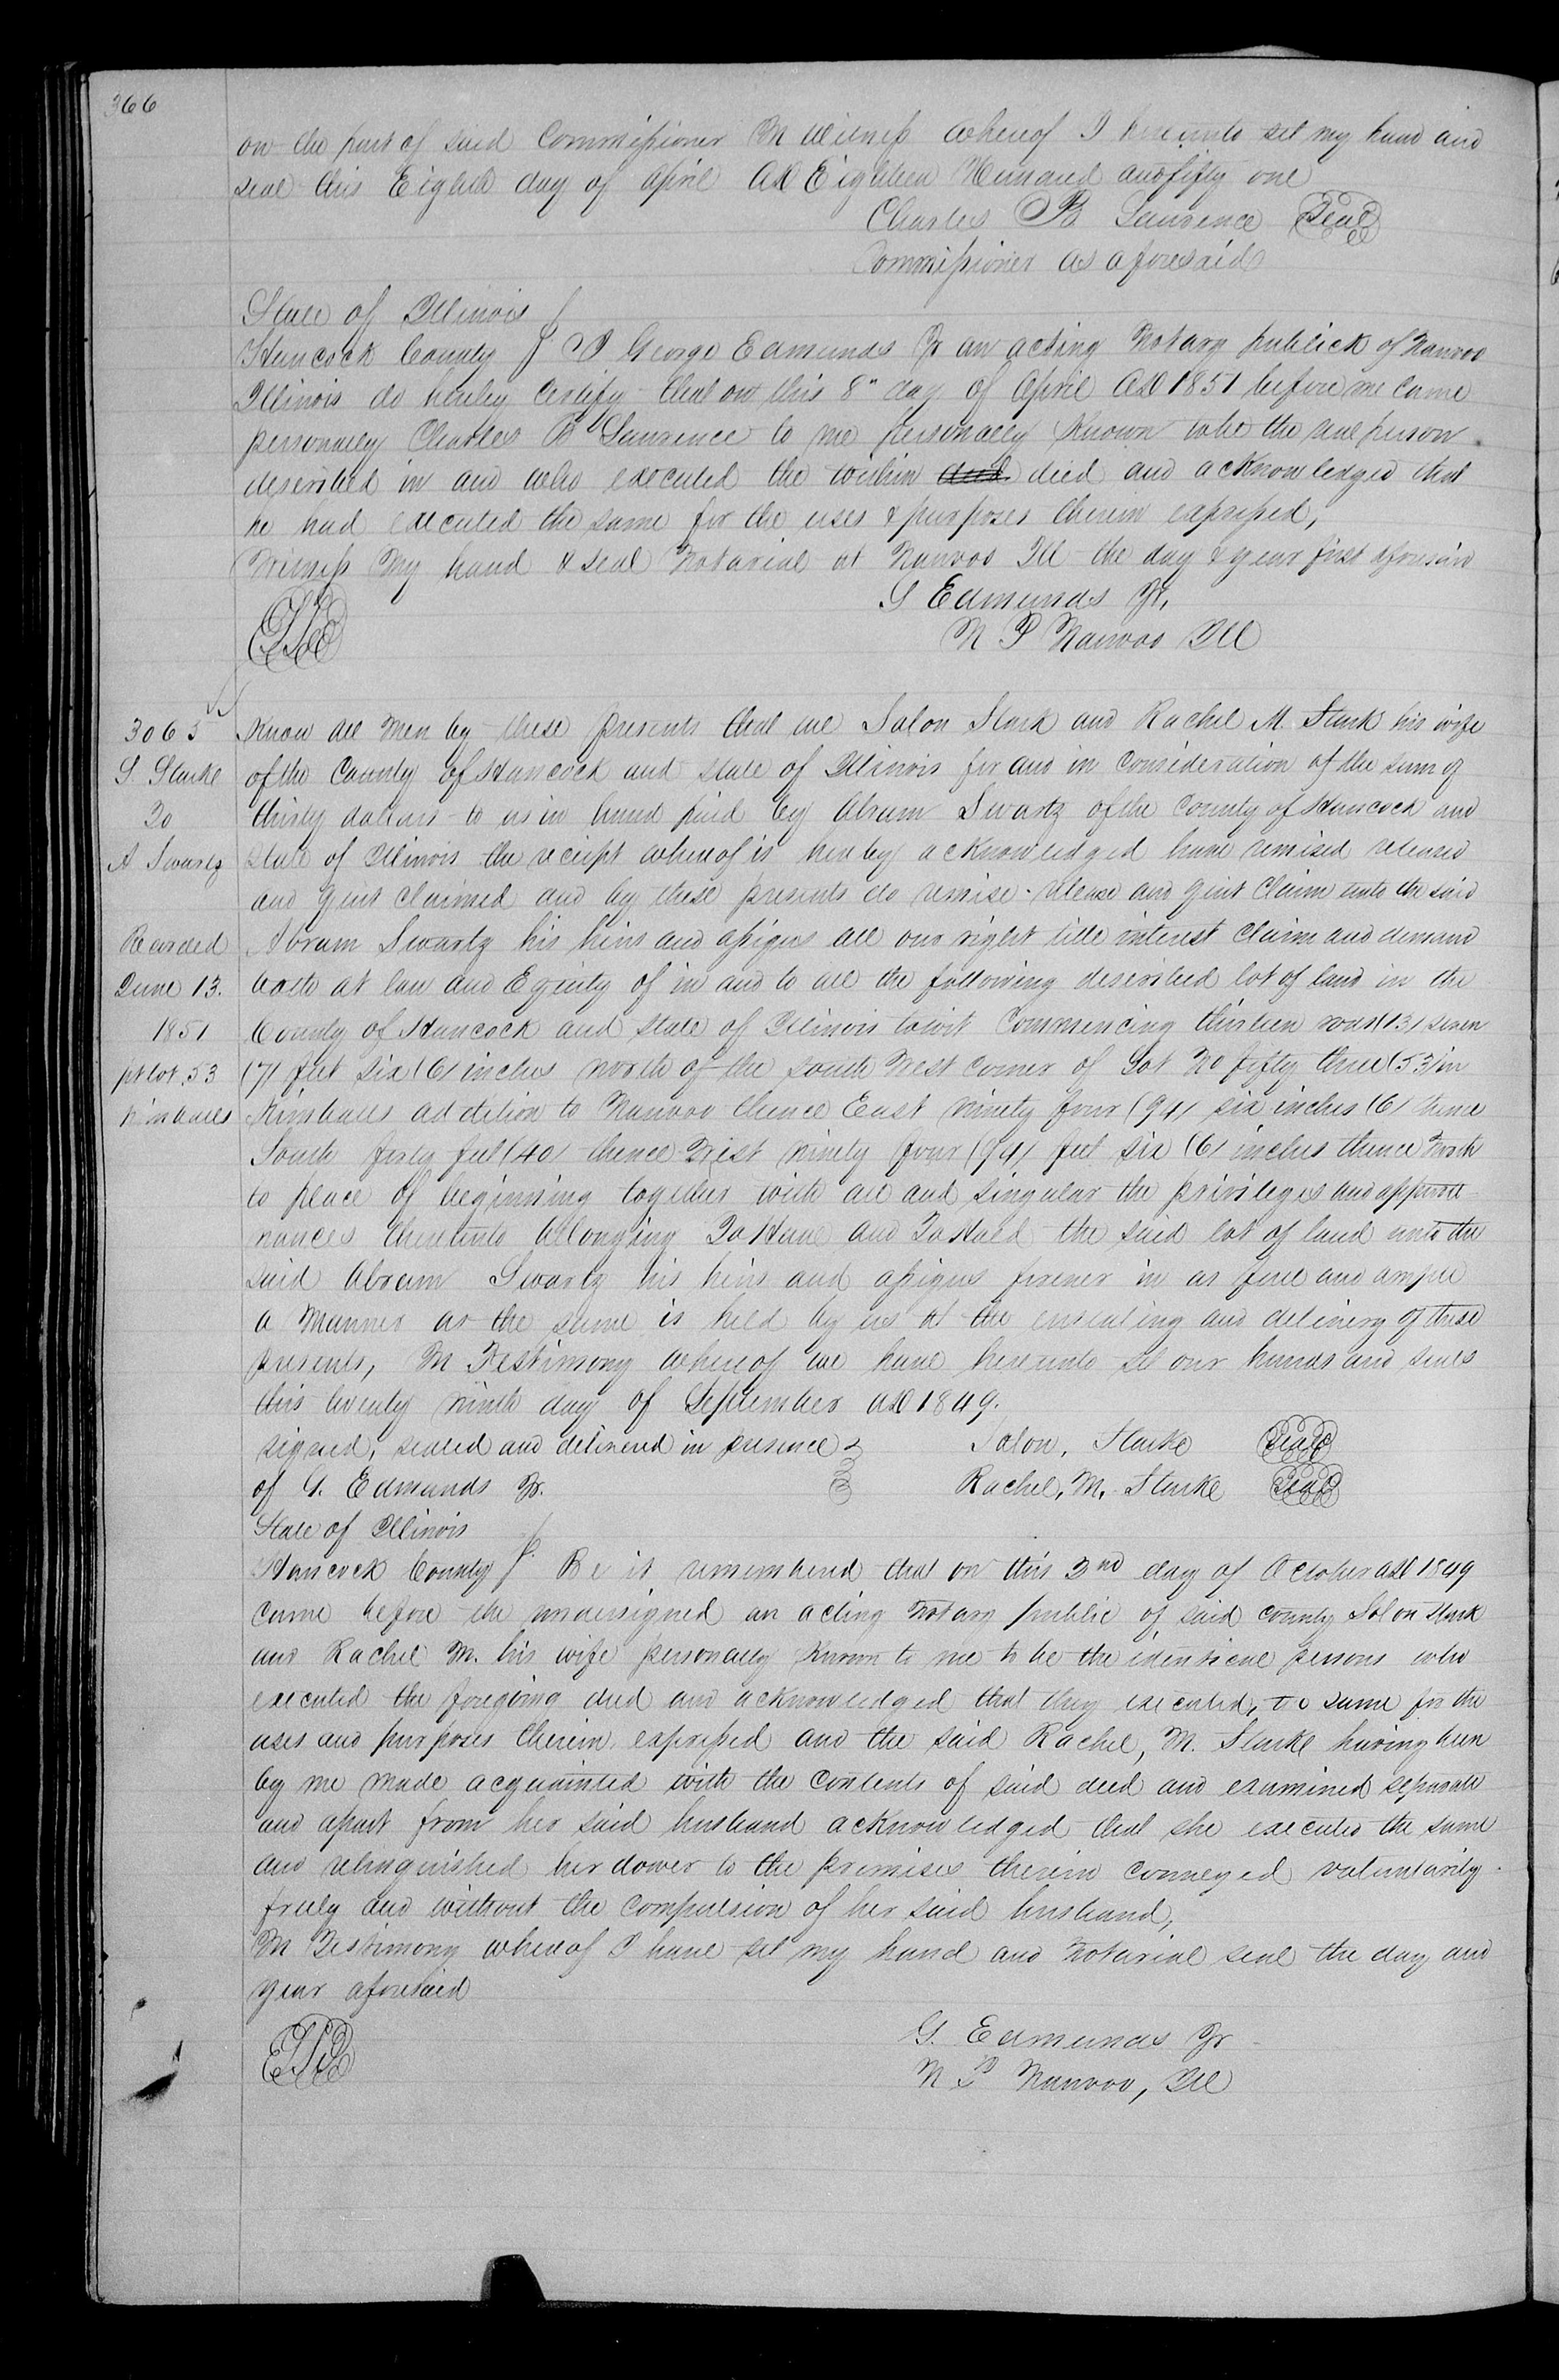 366
on the part of said Commissioner In Witness whereof I hereunto set my hand and
seal this Eighth day of April AD Eighteen Hundred and fifty one
Charles B Lawrence Seal
Commissioner as aforesaid
State of Illinois
Hancock County I George Edmunds Jr an acting Notary publick of Nauvoo
Illinois do hereby Certify that on this 8" day of April AD 1851 before me Came
personally Charles B Lawrence to me personally Known to be the real person
described in and who executed the within deed died and acknowledged that
he had executed the same for the uses & purposes therein expressed,
Witness My hand & seal Notarial at Nauvoo Ill the day & year first aforesaid
G Edmunds Jr.
N P Nauvoo Ill
3065
S. Starke
To
A Swartz
Recorded
June 13.
1851
pt lot 53
Kimballs
Know All Men by these presents that we Solon Stark and Rachel M. Stark his wife
of the County of Hancock and state of Illinois for and in Consideration of the sum of
thirty dollars to us in hand paid by Abram Swartz of the County of Hancock and
state of Illinois the reciept whereof is hereby acknowledged have remised released
and quit claimed and by these presents do remise release and quit Claim unto the said
Abram Swartz his heirs and assigns all our right title interest Claim and demand
both at law and Equity of in and to all the following described lot of land in the
County of Hancock and state of Illinois towit Commencing thirteen rods (13) seven
(7) feet six (6) inches north of the south West Corner of Lot No fifty three (53) in
Kimballs addition to Nauvoo thence East ninety four (94) six inches (6) thence
South forty feet (40) thence West ninety four (94) feet six (6) inches thence North
to place of beginning together with all and singular the privileges and appurte
nances thereunto belonging To Have and To Hold the said lot of land unto the
said Abram Swartz his heirs and assigns forever in as full and ample
a Manner as the same is held by us at the ensealing and delivery of these
presents, In Testimony whereof we have hereunto set our hands and seals
this twenty ninth day of September AD 1849.
signed, sealed and delivered in presence Solon, Starke Seal
of G. Edmunds Jr. Rachel, M, Starke Seal
State of Illinois
Hancock County Be it remembered that on this 3nd day of October AD 1849
Came before the undersigned an acting Notary public of said county Solon Stark
and Rachel M. his wife personally Known to me to be the identical persons who
executed the foregoing deed and acknowledged that they executed, the same for the
uses and purposes therein expressed and the said Rachel, M. Starke having been
by me made acquainted with the Contents of said deed and examined separate
and apart from her said husband acknowledged that she executed the same
and relinquished her dower to the premises therein conveyed voluntarily
freely and without the compulsion of her said husband,
In Testimony whereof I have set my hand and Notarial seal the day and
year aforesaid
G. Edmunds Jr
N P Nauvoo, Ill